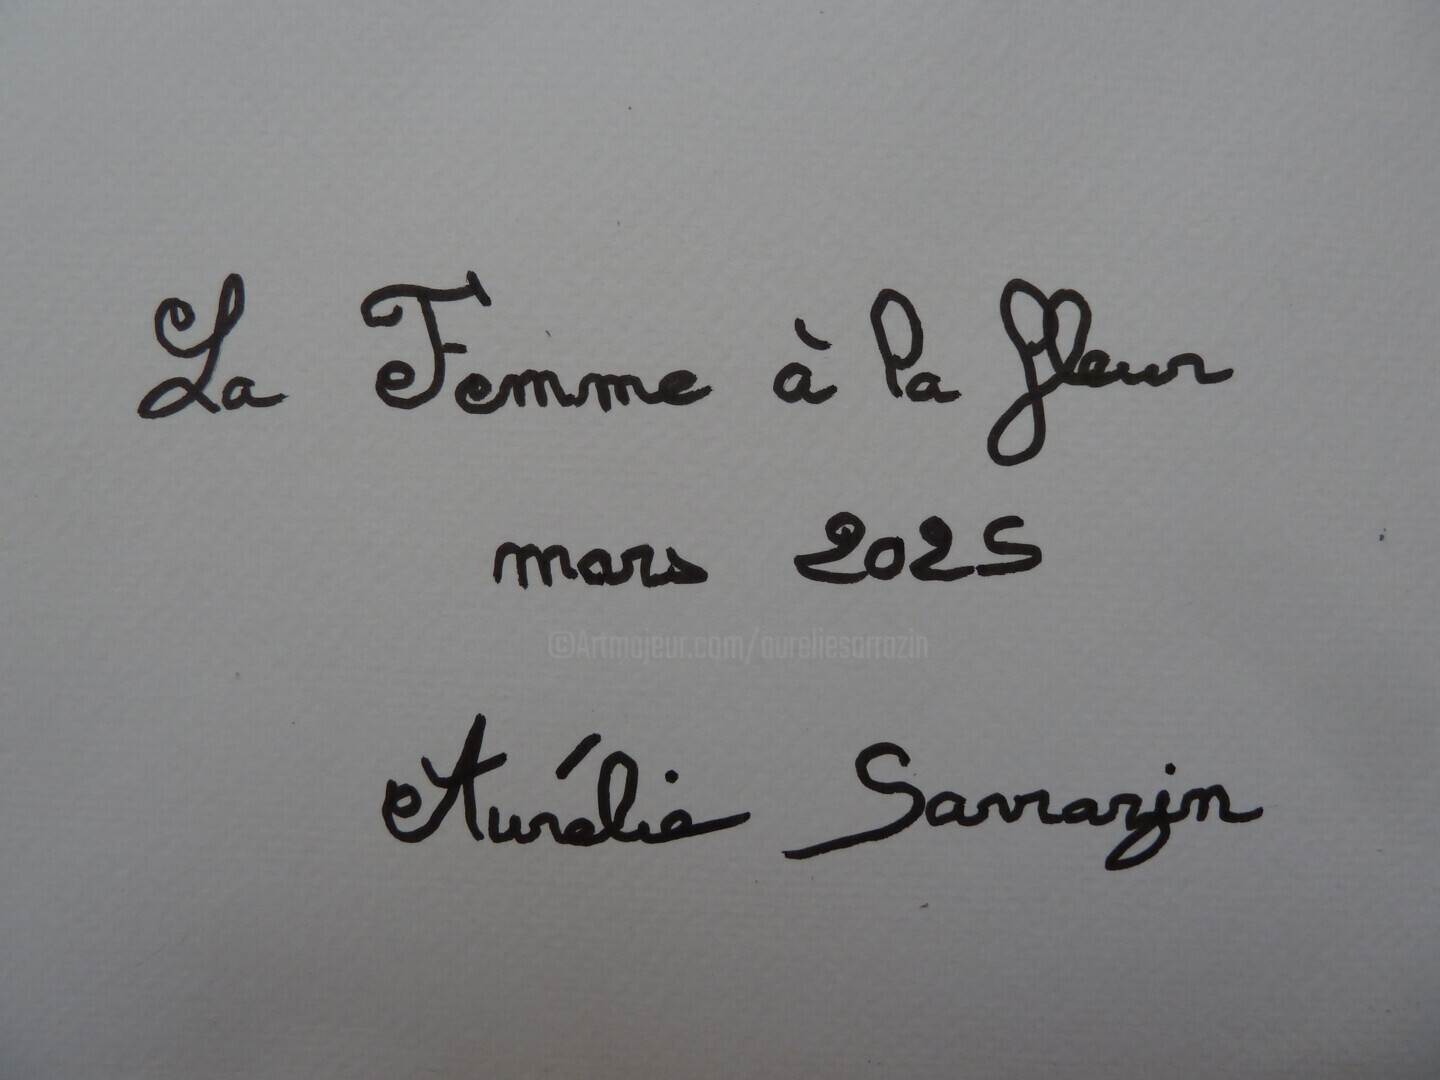 La Femme à la fleur
mars 2025
©Artmajeur.com/aureliesarrazin
Aurélie Sarrazin